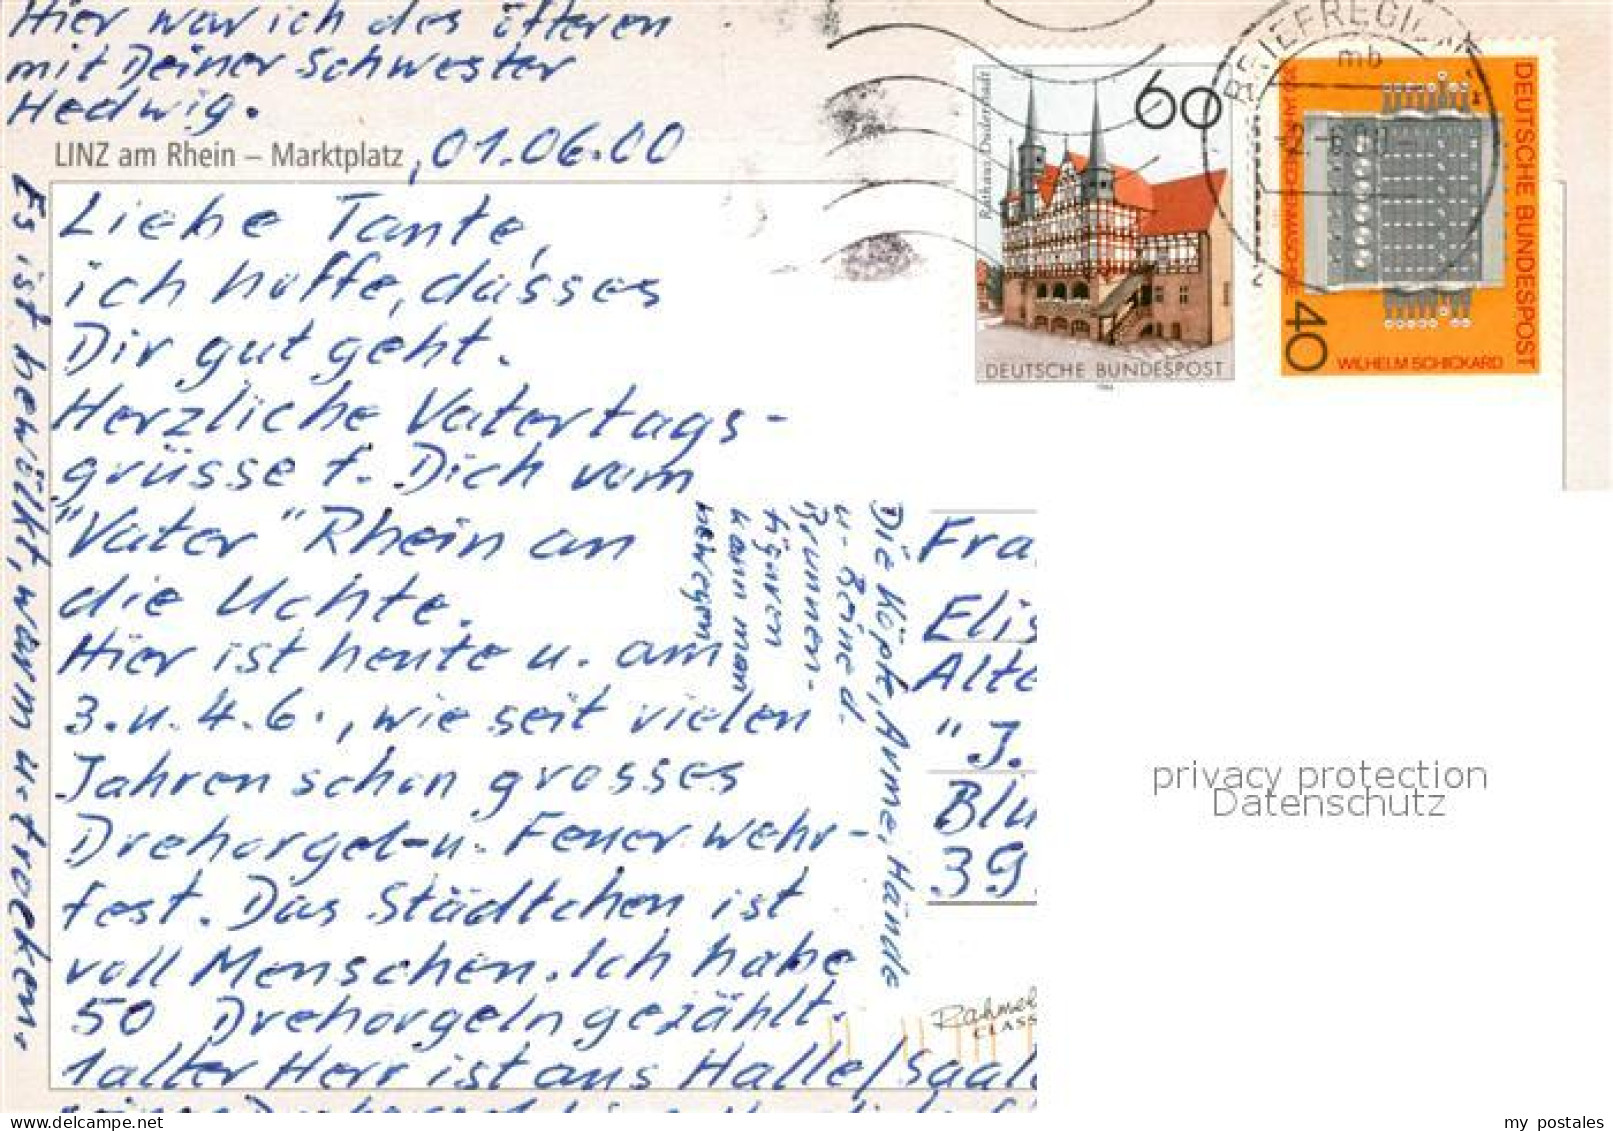 Hier war ich des öfteren
mit Deiner Schwester
Hedwig.
LINZ am Rhein – Marktplatz, 01.06.00
Liebe Tante,
ich hoffe, dass es
Dir gut geht.
Herzliche Vatertags-
grüsse f. Dich vom
"Vater" Rhein an
die Uchte.
Hier ist heute u. am
3. u. 4. 6., wie seit vielen
Jahren schon grosses
Drehorgel- u. Feuerwehr-
fest. Das Städtchen ist
voll Menschen. Ich habe
50 Drehorgeln gezählt.
1 alter Herr ist aus Halle/Saale
Es ist bewölkt, warm u. trocken.
Die Köpfe, Arme, Hände
u. Beine d.
Brunnen-
figuren
kann man
bewegen
Rathaus Duderstadt
60
DEUTSCHE BUNDESPOST
1984
BRIEFREGION
mb
DEUTSCHE BUNDESPOST
40
WILHELM SCHICKARD
Fra
Elis
Alte
"J.
Blu
39
Rahmel
CLASS
privacy protection
Datenschutz
my postales
www.delcampe.net